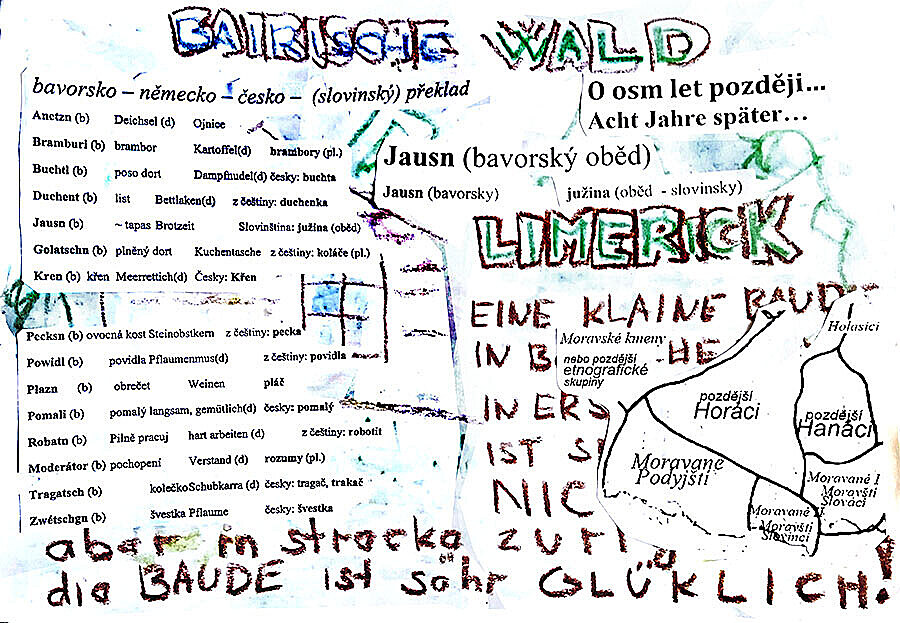 BAIRISCHE WALD
bavorsko – německo – česko – (slovinský) překlad
Anctzn (b) Deichsel (d) Ojnice
Bramburl (b) brambor Kartoffel(d) brambory (pl.)
Buchtl (b) poso dort Dampfnudel(d) česky: buchta
Duchent (b) list Bettlaken(d) z češtiny: duchenka
Jausn (b) ~ tapas Brotzeit Slovinština: južina (oběd)
Golatschn (b) plněný dort Kuchentasche z češtiny: koláče (pl.)
Kren (b) křen Meerrettich(d) Česky: Křen
Pecksn (b) ovocná kost Steinobstkern z češtiny: pecka
Powidl (b) povidla Pflaumenmus(d) z češtiny: povidla
Plazn (b) obrečet Weinen pláč
Pomali (b) pomalý langsam, gemütlich(d) česky: pomalý
Robatn (b) Pilně pracuj hart arbeiten (d) z češtiny: robotit
Moderátor (b) pochopení Verstand (d) rozumy (pl.)
Tragatsch (b) kolečkoSchubkarra (d) česky: tragač, trakač
Zwétschgn (b) švestka Pflaume česky: švestka
O osm let později...
Acht Jahre später...
Jausn (bavorský oběd)
Jausn (bavorsky) južina (oběd - slovinsky)
LIMERICK
EINE KLAINE BAUDE
IN B HE
IN ERS
IST S
NIC
aber in strocka ZURÜ
die BAUDE ist sähr GLÜKLICH!
Moravské kmeny
nebo pozdější
etnografické
skupiny
Holasici
pozdější
Horáci
pozdější
Hanáci
Moravane
Podyjští
Moravané I
Moravští
Slováci
Moravané II
Moravští
Slovinci